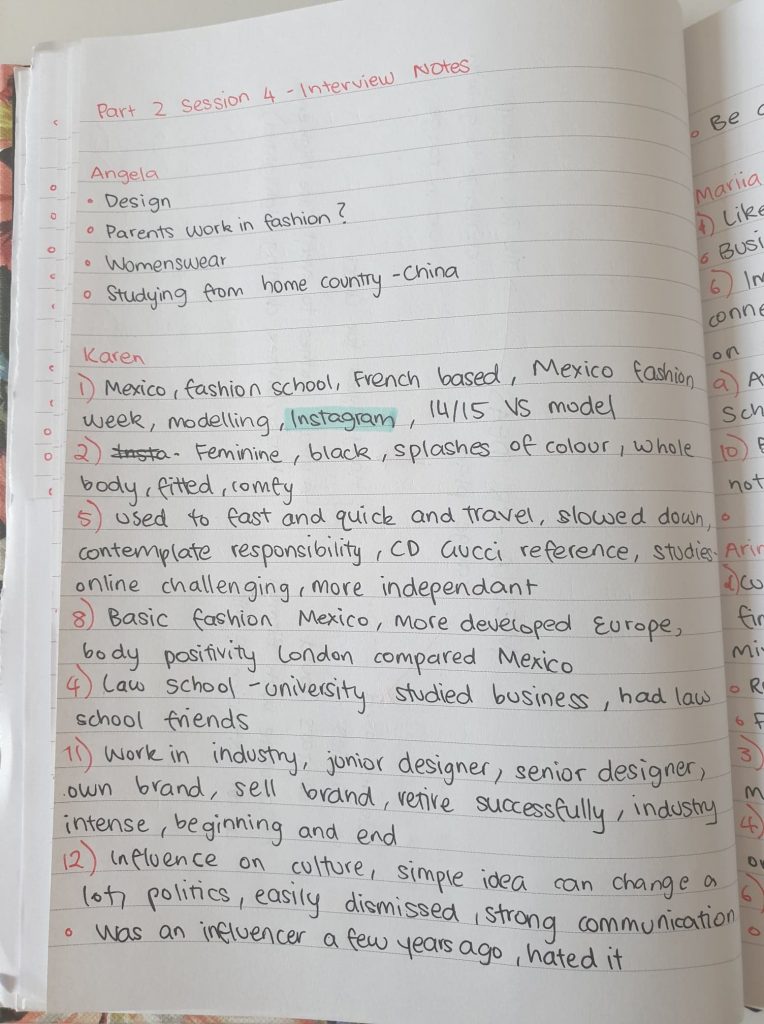 Part 2 Session 4 - Interview Notes
Angela
• Design
• Parents work in fashion?
• Womenswear
• Studying from home country - China
Karen
1) Mexico, fashion school, French based, Mexico fashion
week, modelling, Instagram, 14/15 VS model
2) Insta - Feminine, black, splashes of colour, whole
body, fitted, comfy
5) used to fast and quick and travel, slowed down,
contemplate responsibility, CD Gucci reference, studies
online challenging, more independant
8) Basic fashion Mexico, more developed Europe,
body positivity London compared Mexico
4) Law school - university studied business, had law
school friends
11) Work in industry, junior designer, senior designer,
own brand, sell brand, retire successfully, industry
intense, beginning and end
12) Influence on culture, simple idea can change a
lot, politics, easily dismissed, strong communication
• Was an influencer a few years ago, hated it
• Be
Mariia
Like
6)
on
a)
10)
not
•
3)
4)
6)